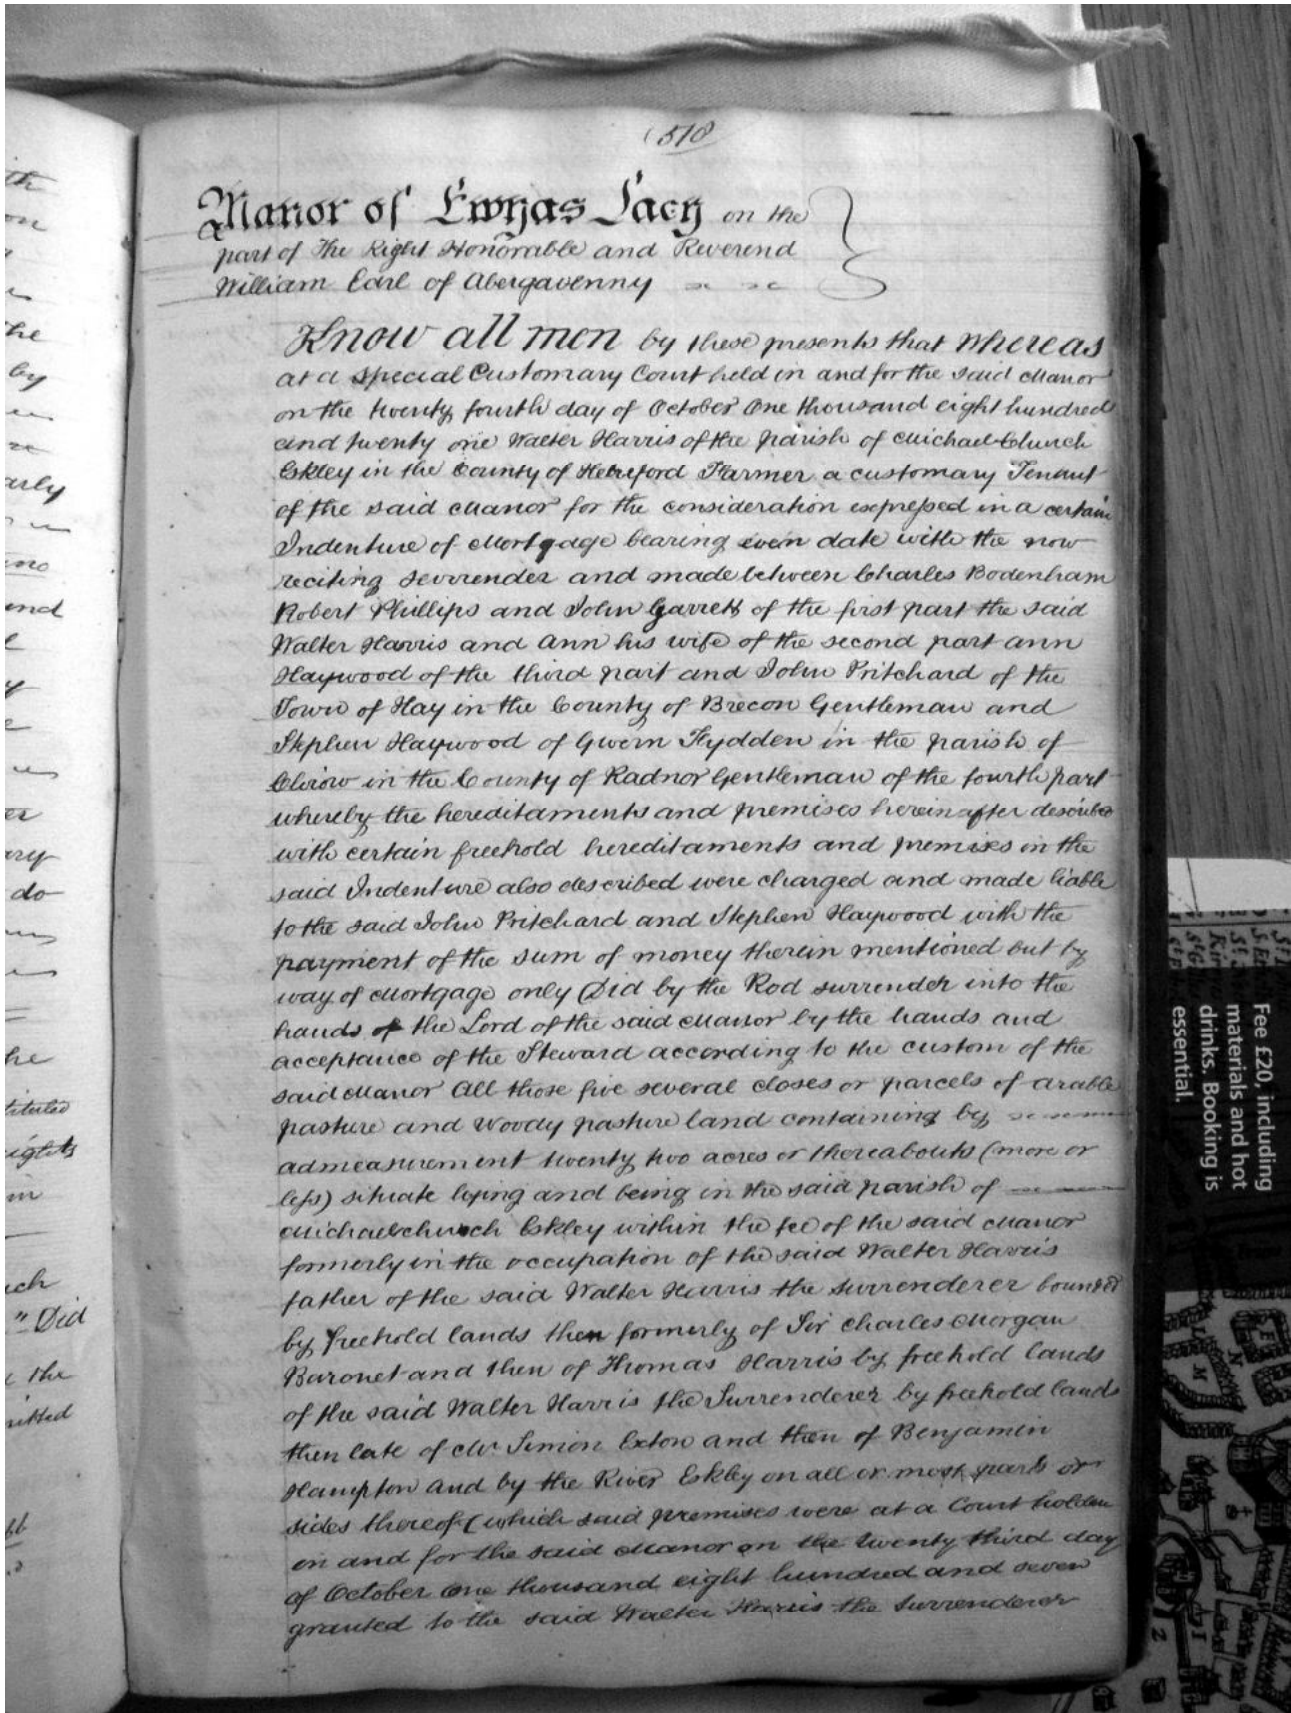 (510)
Manor of Ewyas Lacy on the
part of The Right Honorable and Reverend
William Earl of Abergavenny
Know all men by these presents that Whereas
at a Special Customary Court held in and for the said Manor
on the twenty fourth day of October One thousand eight hundred
and twenty one Walter Harris of the parish of Michael Church
Eskley in the County of Hereford Farmer a customary Tenant
of the said Manor for the consideration expressed in a certain
Indenture of Mortgage bearing even date with the now
reciting Surrender and made between Charles Bodenham
Robert Phillips and John Garrett of the first part the said
Walter Harris and Ann his wife of the second part Ann
Haywood of the third part and John Pritchard of the
Town of Hay in the County of Brecon Gentleman and
Stephen Haywood of Gwern Fydden in the parish of
Clirow in the County of Radnor Gentleman of the fourth part
whereby the hereditaments and premises hereinafter described
with certain freehold hereditaments and premises in the
said Indenture also described were charged and made liable
to the said John Pritchard and Stephen Haywood with the
payment of the sum of money therein mentioned but by
way of Mortgage only Did by the Rod surrender into the
hands of the Lord of the said Manor by the hands and
acceptance of the Steward according to the custom of the
said Manor All those five several closes or parcels of arable
pasture and Woody pasture land containing by
admeasurement twenty two acres or thereabouts (more or
less) situate lying and being in the said parish of
Michaelchurch Eskley within the fee of the said Manor
formerly in the occupation of the said Walter Harris
father of the said Walter Harris the surrenderer bounded
by freehold lands then formerly of Sir Charles Morgan
Baronet and then of Thomas Harris by freehold lands
of the said Walter Harris the Surrenderer by freehold lands
then late of Mr. Simon Exton and then of Benjamin
Hampton and by the River Eskley on all or most parts or
sides thereof (which said premises were at a Court holden
in and for the said Manor on the twenty third day
of October One thousand eight hundred and seven
granted to the said Walter Harris the Surrenderer
Fee £20, including
materials and hot
drinks. Booking is
essential.